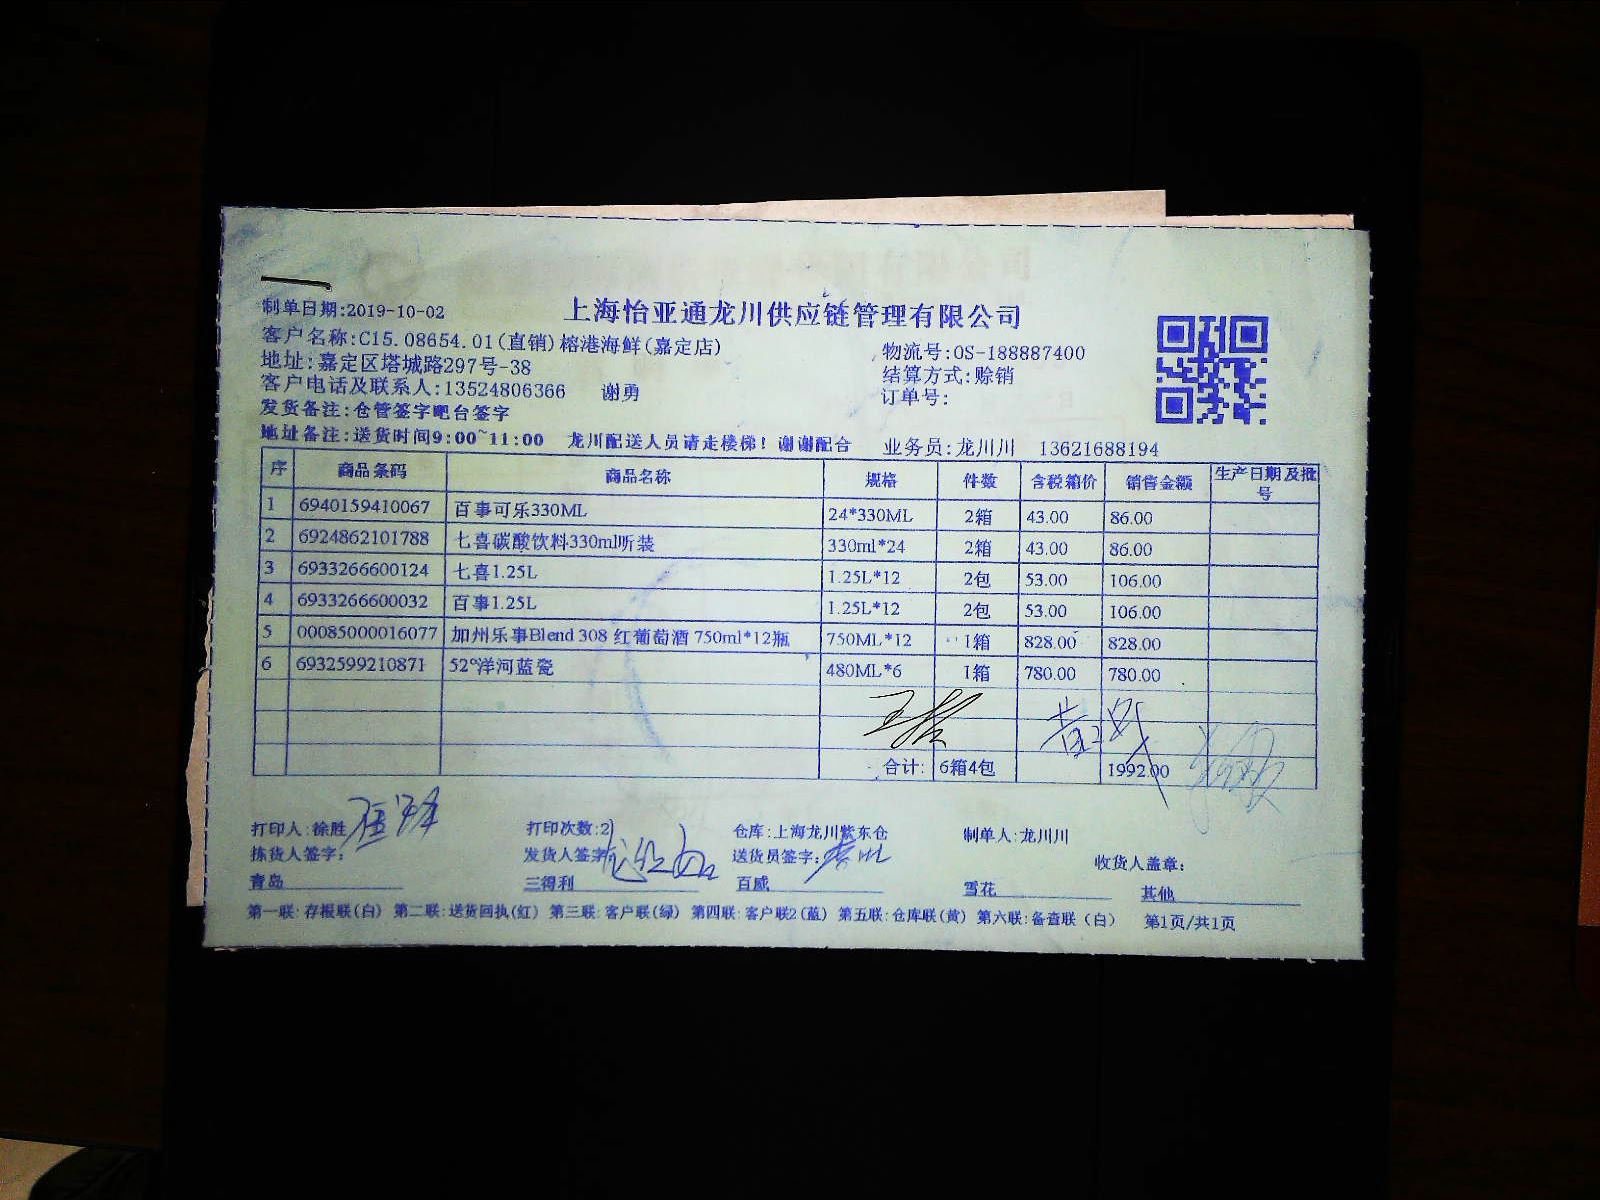 制单日期:2019-10-02
上海怡亚通龙川供应链管理有限公司
客户名称:C15.08654.01(直销)榕港海鲜(嘉定店)
物流号:OS-188887400
地址:嘉定区塔城路297号-38
结算方式:赊销
客户电话及联系人:13524806366 谢勇
订单号:
发货备注:仓管签字吧台签字
地址备注:送货时间9:00~11:00 龙川配送人员请走楼梯!谢谢配合 业务员:龙川川 13621688194
序 商品条码 商品名称 规格 件数 含税箱价 销售金额 生产日期及批号
1 6940159410067 百事可乐330ML 24*330ML 2箱 43.00 86.00
2 6924862101788 七喜碳酸饮料330ml听装 330ml*24 2箱 43.00 86.00
3 6933266600124 七喜1.25L 1.25L*12 2包 53.00 106.00
4 6933266600032 百事1.25L 1.25L*12 2包 53.00 106.00
5 00085000016077 加州乐事Blend 308 红葡萄酒 750ml*12瓶 750ML*12 1箱 828.00 828.00
6 6932599210871 52°洋河蓝瓷 480ML*6 1箱 780.00 780.00
合计: 6箱4包 1992.00
打印人:徐胜 打印次数:2 仓库:上海龙川紫东仓 制单人:龙川川
拣货人签字: 发货人签字: 送货员签字: 收货人盖章:
青岛 三得利 百威 雪花 其他
第一联:存根联(白) 第二联:送货回执(红) 第三联:客户联(绿) 第四联:客户联2(蓝) 第五联:仓库联(黄) 第六联:备查联(白) 第1页/共1页